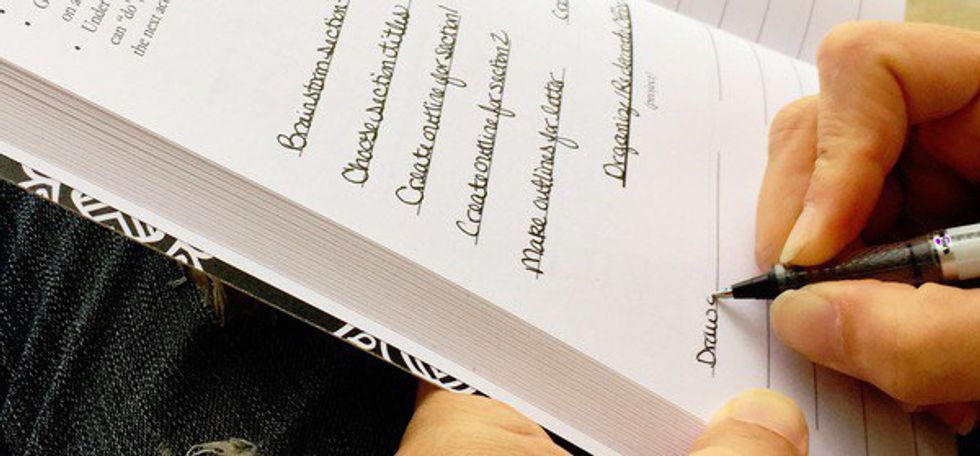 on a
• Under
can “do”
the next
Brainstorm section
Choose section titles
Create outline for section 1
Create outline for section 2
Make outlines for letter
Organize
(project)
Draw